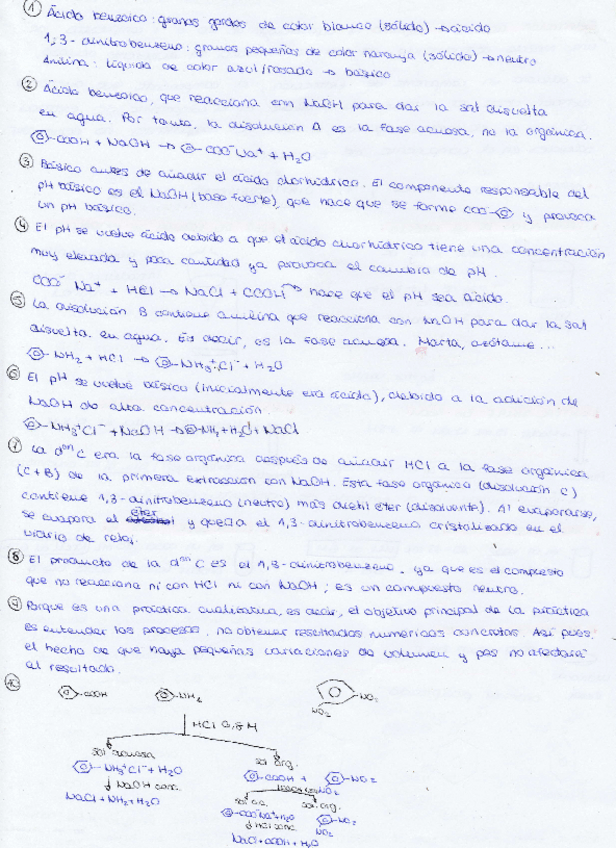 ① Ácido benzoico: granos gordos de color blanco (sólido) → ácido
1,3-dinitrobenzeno: granos pequeños de color naranja (sólido) → neutro
Anilina: líquido de color azul/rosado → básico
② Ácido benzoico, que reacciona con NaOH para dar la sal disuelta
en agua. Por tanto, la disolución A es la fase acuosa, no la orgánica.
-COOH + NaOH → -COO⁻Na⁺ + H₂O
③ Básico antes de añadir el ácido clorhídrico. El componente responsable del
pH básico es el NaOH (base fuerte), que hace que se forme COO⁻- y provoca
un pH básico.
④ El pH se vuelve ácido debido a que el ácido clorhídrico tiene una concentración
muy elevada y poca cantidad ya provoca el cambio de pH.
COO⁻ Na⁺ + HCl → NaCl + COOH → hace que el pH sea ácido.
⑤ La disolución B contiene anilina que reacciona con NaOH para dar la sal
disuelta en agua. Es decir, es la fase acuosa. Marta, azótame...
-NH₂ + HCl → -NH₃⁺Cl⁻ + H₂O
⑥ El pH se vuelve básico (inicialmente era ácido), debido a la adición de
NaOH de alta concentración.
-NH₃⁺Cl⁻ + NaOH → -NH₂ + H₂O + NaCl
⑦ La dᵒⁿ C era la fase orgánica después de añadir HCl a la fase orgánica
(C+B) de la primera extracción con NaOH. Esta fase orgánica (disolución C)
contiene 1,3-dinitrobenzeno (neutro) más dietil éter (disolvente). Al evaporarse,
se evapora el éter y queda el 1,3-dinitrobenceno cristalizado en el
vidrio de reloj.
⑧ El producto de la dᵒⁿ C es el 1,3-dinitrobenzeno, ya que es el compuesto
que no reacciona ni con HCl ni con NaOH; es un compuesto neutro.
⑨ Porque es una práctica cualitativa, es decir, el objetivo principal de la práctica
es entender los procesos, no obtener resultados numéricos concretos. Así pues,
el hecho de que haya pequeñas variaciones de volumen y pos no afectará
al resultado.
⑩ -COOH -NH₂ -NO₂
NO₂
HCl 0,5 M
sol acuosa sol org.
-NH₃⁺Cl⁻ + H₂O -COOH + -NO₂
↓ NaOH conc. NO₂
NaCl + NH₂ + H₂O sol ac. sol org.
-COO⁻Na⁺ + H₂O -NO₂
↓ HCl conc. NO₂
NaCl + COOH + H₂O